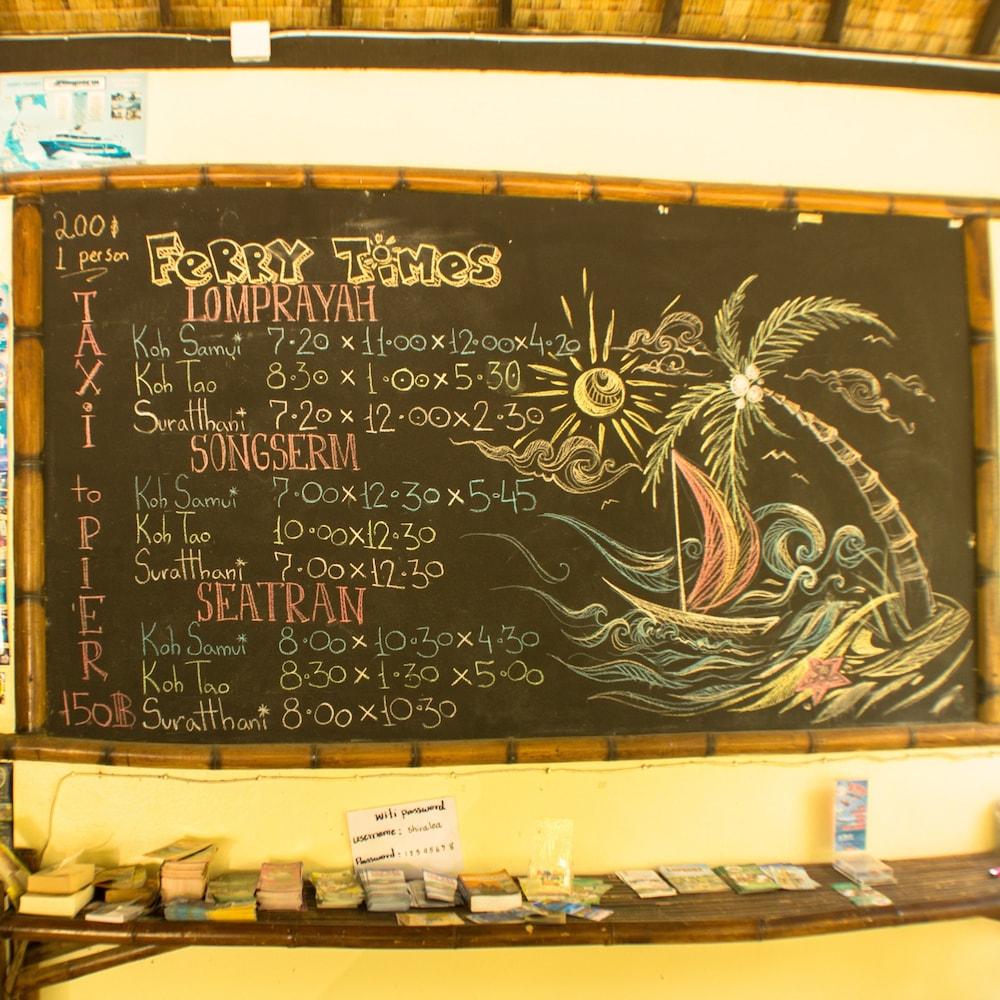 200฿
1 person
FERRY TiMES
LOMPRAYAH
Koh Samui* 7·20 × 11·00 × 12·00 × 4·20
Koh Tao 8·30 × 1·00 × 5·30
Suratthani 7·20 × 12·00 × 2·30
SONGSERM
Koh Samui* 7·00 × 12·30 × 5·45
Koh Tao 10·00 × 12·30
Suratthani 7·00 × 12·30
SEATRAN
Koh Samui* 8·00 × 10·30 × 4·30
Koh Tao 8·30 × 1·30 × 5·00
Suratthani* 8·00 × 10·30
TAXi
to
PIER
+50฿
Wifi password
username: shiralea
Password: 12345678